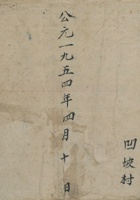 公元一九五四年四月十日
凹坡村